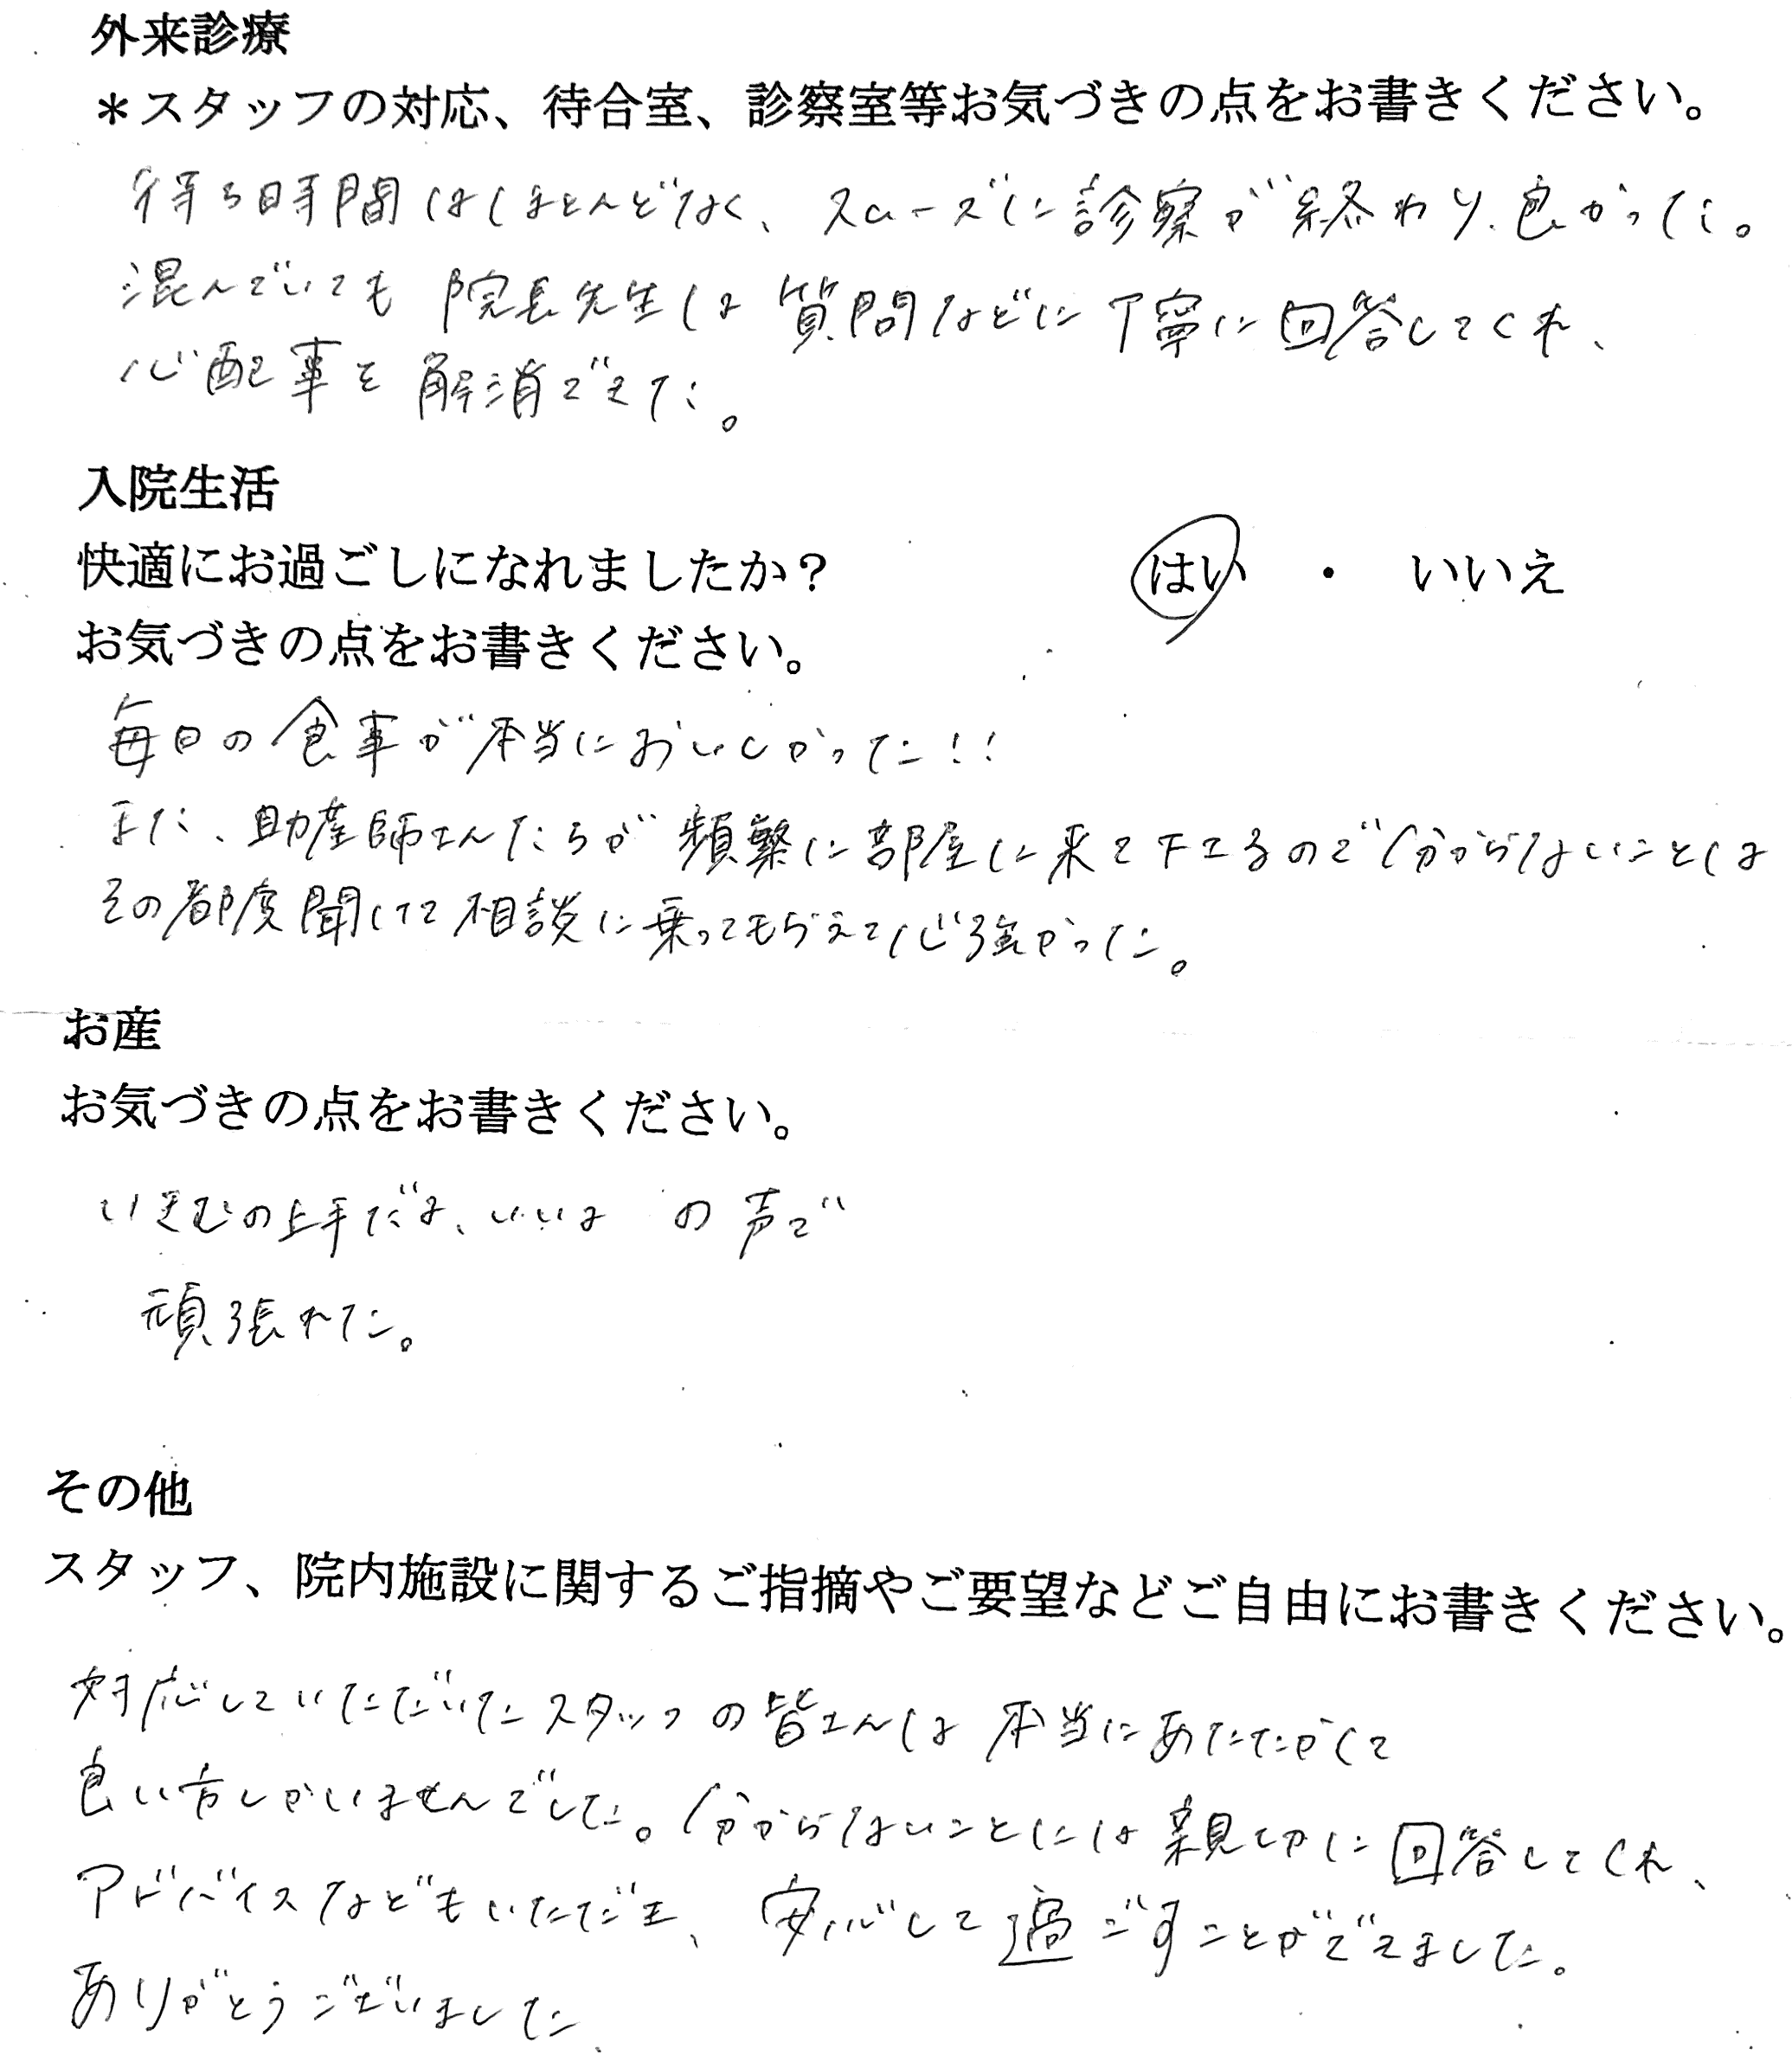 外来診療
＊スタッフの対応、待合室、診察室等お気づきの点をお書きください。
待ち時間はほとんどなく、スムーズに診察が終わり、良かった。
混んでいても院長先生は質問などに丁寧に回答してくれ、
心配事を解消できた。
入院生活
快適にお過ごしになれましたか？ はい ・ いいえ
お気づきの点をお書きください。
毎日の食事が本当においしかった！！
また、助産師さんたちが頻繁に部屋に来て下さるので分からないことは
その都度聞けて相談に乗ってもらえて心強かった。
お産
お気づきの点をお書きください。
いきむの上手だよ、いいよ の声で
頑張れた。
その他
スタッフ、院内施設に関するご指摘やご要望などご自由にお書きください。
対応していただいたスタッフの皆さんは本当にあたたかくて
良い方しかいませんでした。分からないことには親切に回答してくれ、
アドバイスなどもいただき、安心して過ごすことができました。
ありがとうございました